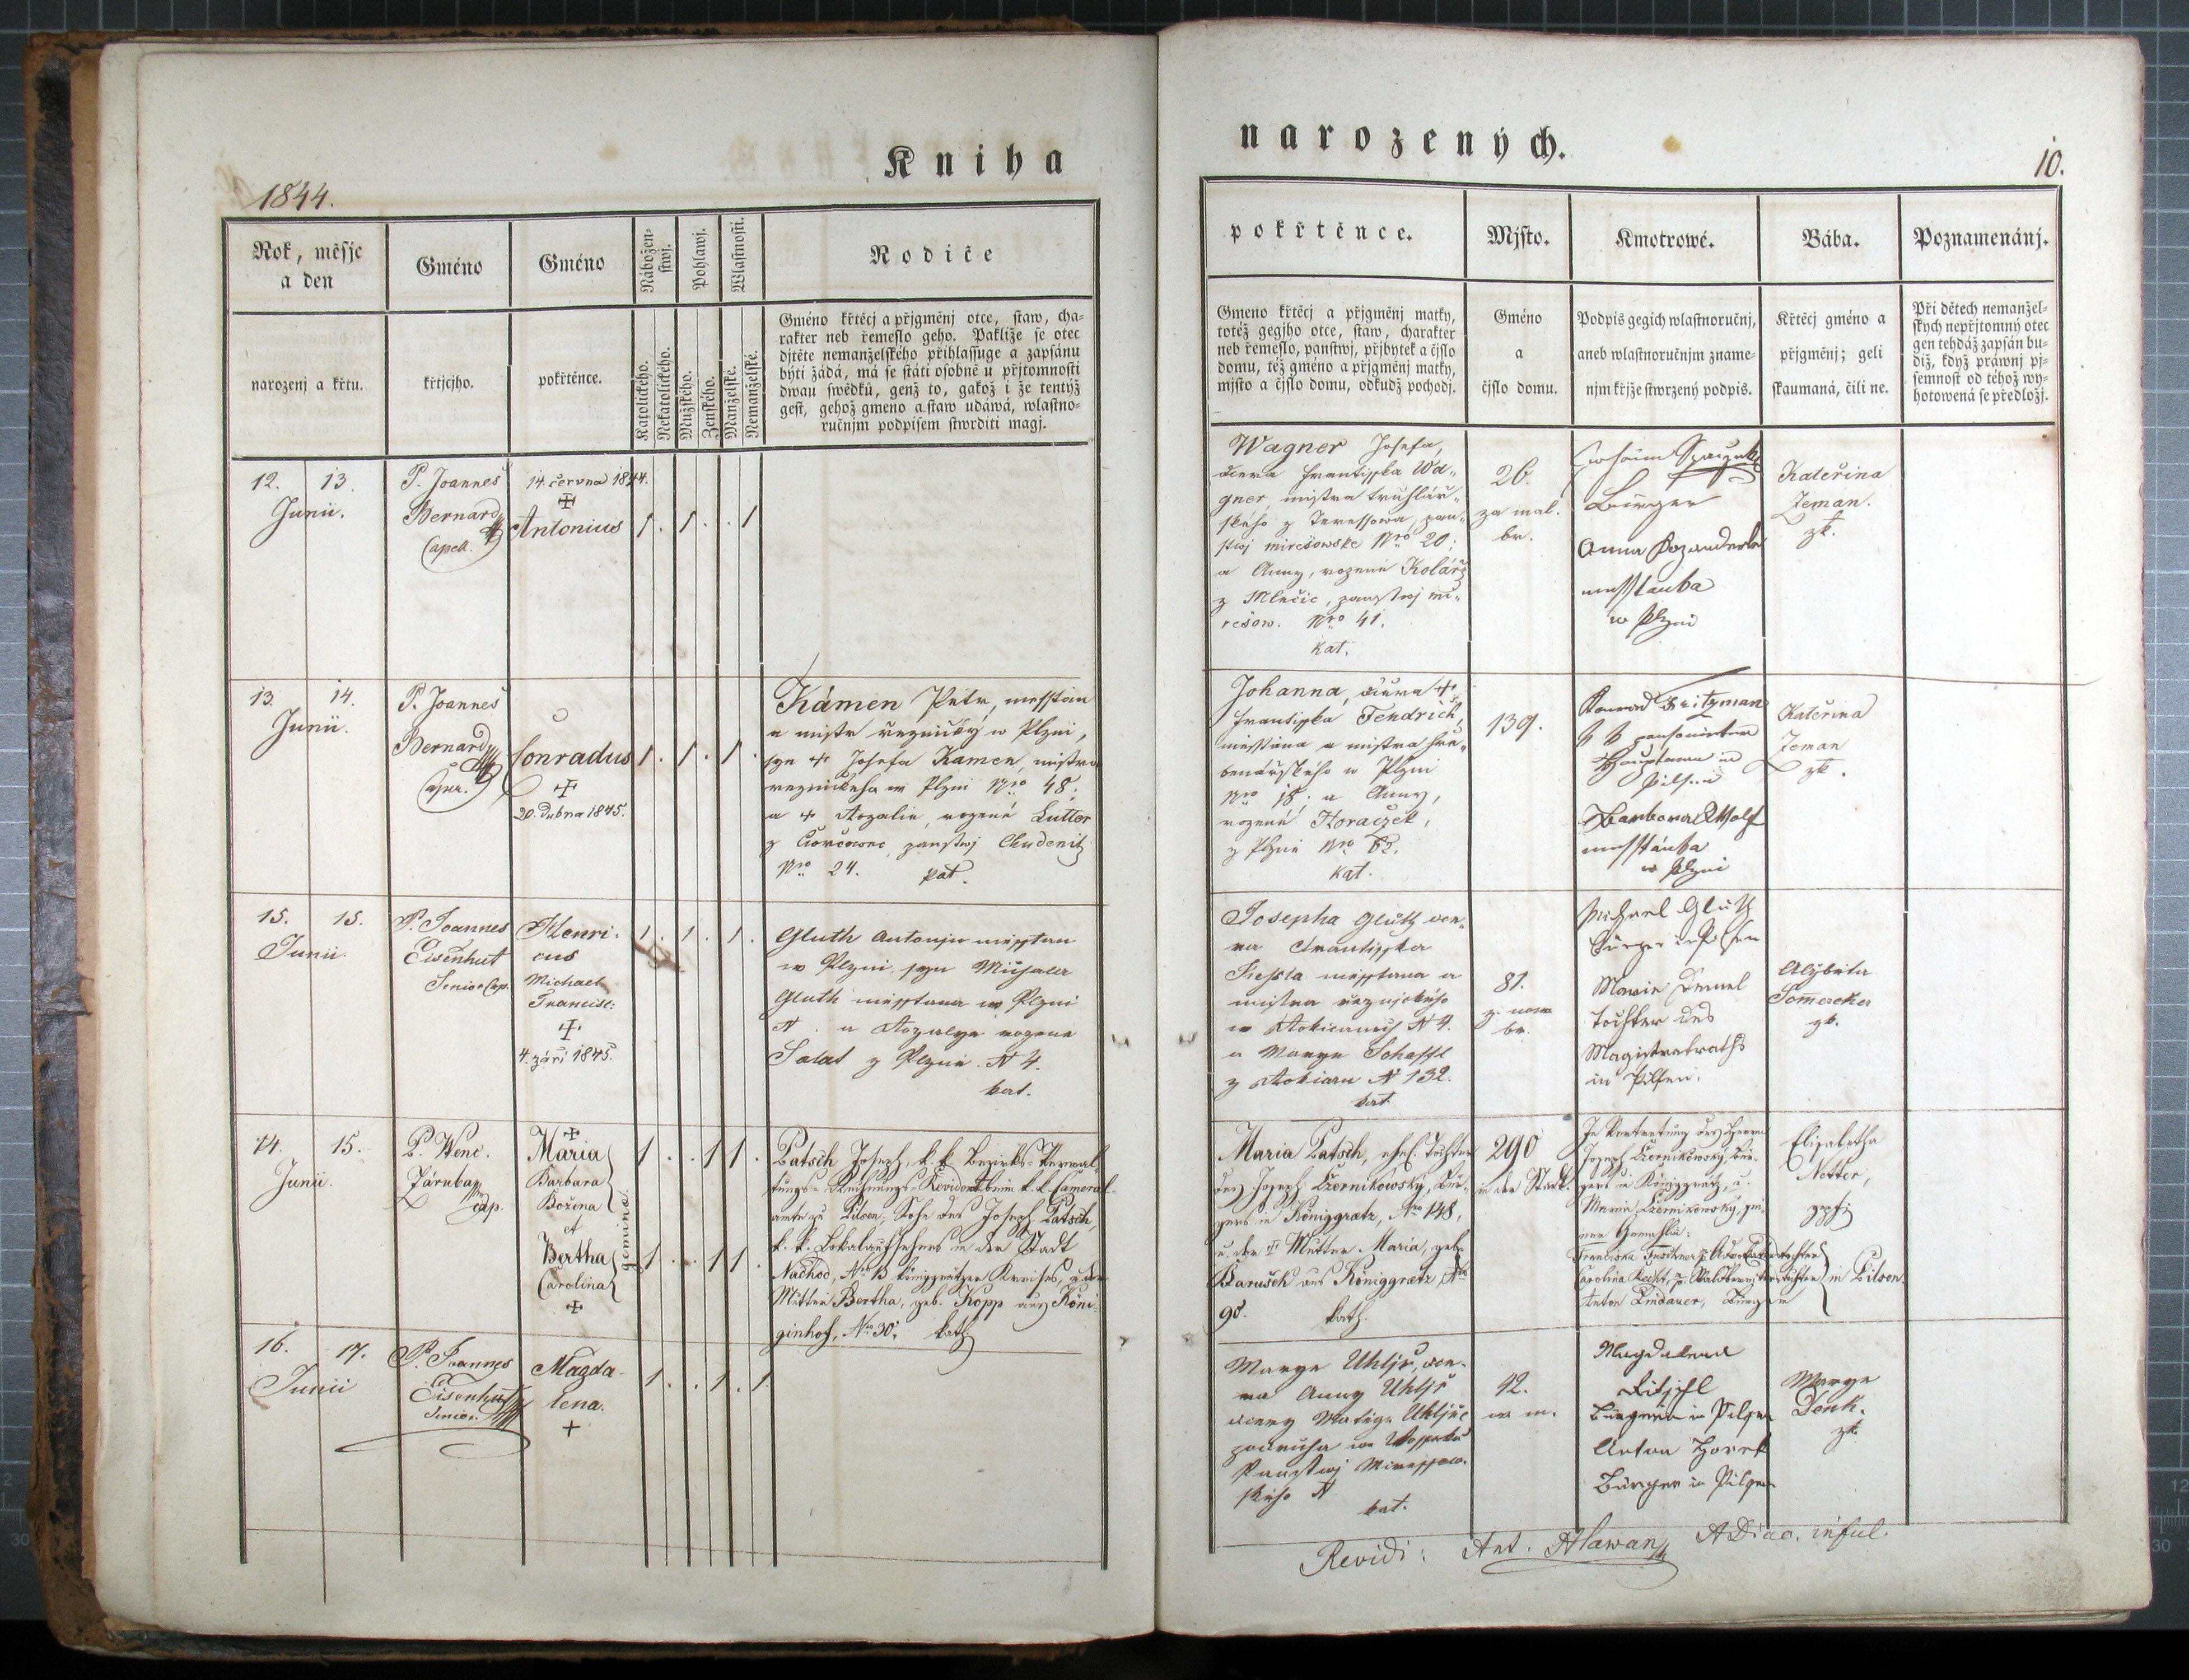 Kniha
narozených.
1844.
10.
Rok, měsjc
a den
narozenj a křtu.
Gméno
křtjcjho.
Gméno
pokřtěnce.
Nábožen-
stwj.
Katolického.
Nekatolického.
Pohlawj.
Mužského.
Ženského.
Wlastnosti.
Manželské.
Nemanželské.
Rodiče
Gméno křtěcj a přjgměnj otce, staw, cha-
rakter neb řemeslo geho. Pakliže se otec
djtěte nemanželského přihlassuge a zapsánu
býti žádá, má se státi osobně u přjtomnosti
dwau swědků, genž to, gakož i že tentýž
gest, gehož gmeno a staw udáwá, wlastno-
ručnjm podpisem stwrditi magj.
pokřtěnce.
Gmeno křtěcj a přjgměnj matky,
totéž gegjho otce, staw, charakter
neb řemeslo, panstwj, přjbytek a čjslo
domu, též gméno a přjgměnj matky,
mjsto a čjslo domu, odkudž pochodj.
Mjsto.
Gméno
a
čjslo domu.
Kmotrowé.
Podpis gegich wlastnoručnj,
aneb wlastnoručnjm zname-
njm křjže stwrzený podpis.
Bába.
Křtěcj gméno a
přjgměnj; geli
skaumaná, čili ne.
Poznamenánj.
Při dětech nemanžel-
ských nepřjtomný otec
gen tehdáž zapsán bu-
diž, když práwnj pj-
semnost od téhož wy-
hotowená se předložj.
12. 13.
Junii.
P. Joannes
Bernard
Capell.
14. června 1844.
✠
Antonius
1. 1. . 1
Wagner Josefa,
dcera Frantisska Wa-
gner, mistra truhlář-
ského z Teressowa, pan-
stwj mirešowske Nro 20;
a Anny, rozené Kolářz
z Mlečic, panstwj mi-
rešow. Nro 41.
kat.
26.
za mal.
br.
Bürger
Anna
messtanka
w Plzni
Kateřina
Zeman.
zk.
13. 14.
Junii.
P. Joannes
Bernard
Conradus
✠
20. dubna 1845.
1. 1. 1.
Kámen Petr, messtan
a mistr řeznický w Plzni,
syn ✠ Josefa Kamen, mistra
řeznického w Plzni Nro 48;
a ✠ Rozalie, rozené Lutter
z panstwj Chudenitz
Nro 24. kat.
Johanna, dcera ✠
Frantisska Fendrich,
messtána a mistra hře-
benářského w Plzni
Nro 18; a Anny,
rozené Horaczek,
z Plzni Nro 62.
kat.
139.
Konrad Fritzman
k k pensionirter
Hauptmann in
Pilsen
Barbora Wolf
messtánka
w Plzni
Kateřina
Zeman
zk.
15. 15.
Junii.
P. Joannes
Eisenhut
Senior Cap.
Henri-
cus
Michael
Francisc:
✠
4. září 1845.
1. 1. 1.
Gluth Antonjn messtan
w Plzni, syn Michala
Gluth messtana w Plzni
N . a Rozalye rozene
Salat z Plzni N 4.
kat.
Josepha Gluth dce-
ra Frantisska
messtana a
mistra řeznického
w Rokicanech N 4.
a Marye Schaffl
z Rokican N 132.
kat.
81.
br.
Michael Gluth
Bürger in Pilsen
Marie
Tochter des
Magistratraths
in Pilsen.
Alžběta
zk.
14. 15.
Junii.
P. Wenc.
Záruba
Cap.
✠
Maria
Barbara
Božena
et
Bertha
Carolina
✠
geminae.
1. . 1 1.
1. . 1 1
Patsch Joseph, k. k. Bezirks-Verwal-
tungs-Rechnungs-Revident beim k. k. Cameral-
amte zu Pilsen, Sohn des Joseph Patsch,
k. k. Lokalaufsehers in der Stadt
Nachod, Nro 13 Königgrätzer Kreises, u. der
Mutter Bertha, geb. Kopp aus Köni-
ginhof, Nro 30. kath.
Maria Patsch, ehel. Tochter
des Joseph Czernikowsky, Bür-
gers in Königgraetz, Nro 148,
u. der ✠ Mutter Maria, geb.
Barusch aus Königgraetz, Nro
98. kath.
290
in der Stadt.
In Vertretung des Herrn
Joseph Czernikowsky, Bür-
gers in Königgrätz, u.
Maria Czernikowsky, sei-
ner Gemahlin:
Franciska
Carolina
Anton Lindauer, Bürger
in Pilsen.
Elisabetha
Netter,
gepr.
16. 17.
Junii
P. Joannes
Eisenhut
Senior.
Magda-
lena.
+
1. . 1. 1.
Marye Uhljř, dce-
ra Anny Uhljř
dcery Matěge Uhljře
podruha
Panstwj
ského N
kat.
42.
w m.
Magdalena
Bürgerin in Pilsen
Anton
Bürger in Pilsen
Marye
Denk.
zk.
Revidi: Ant. Hlawan ADiac. inful.